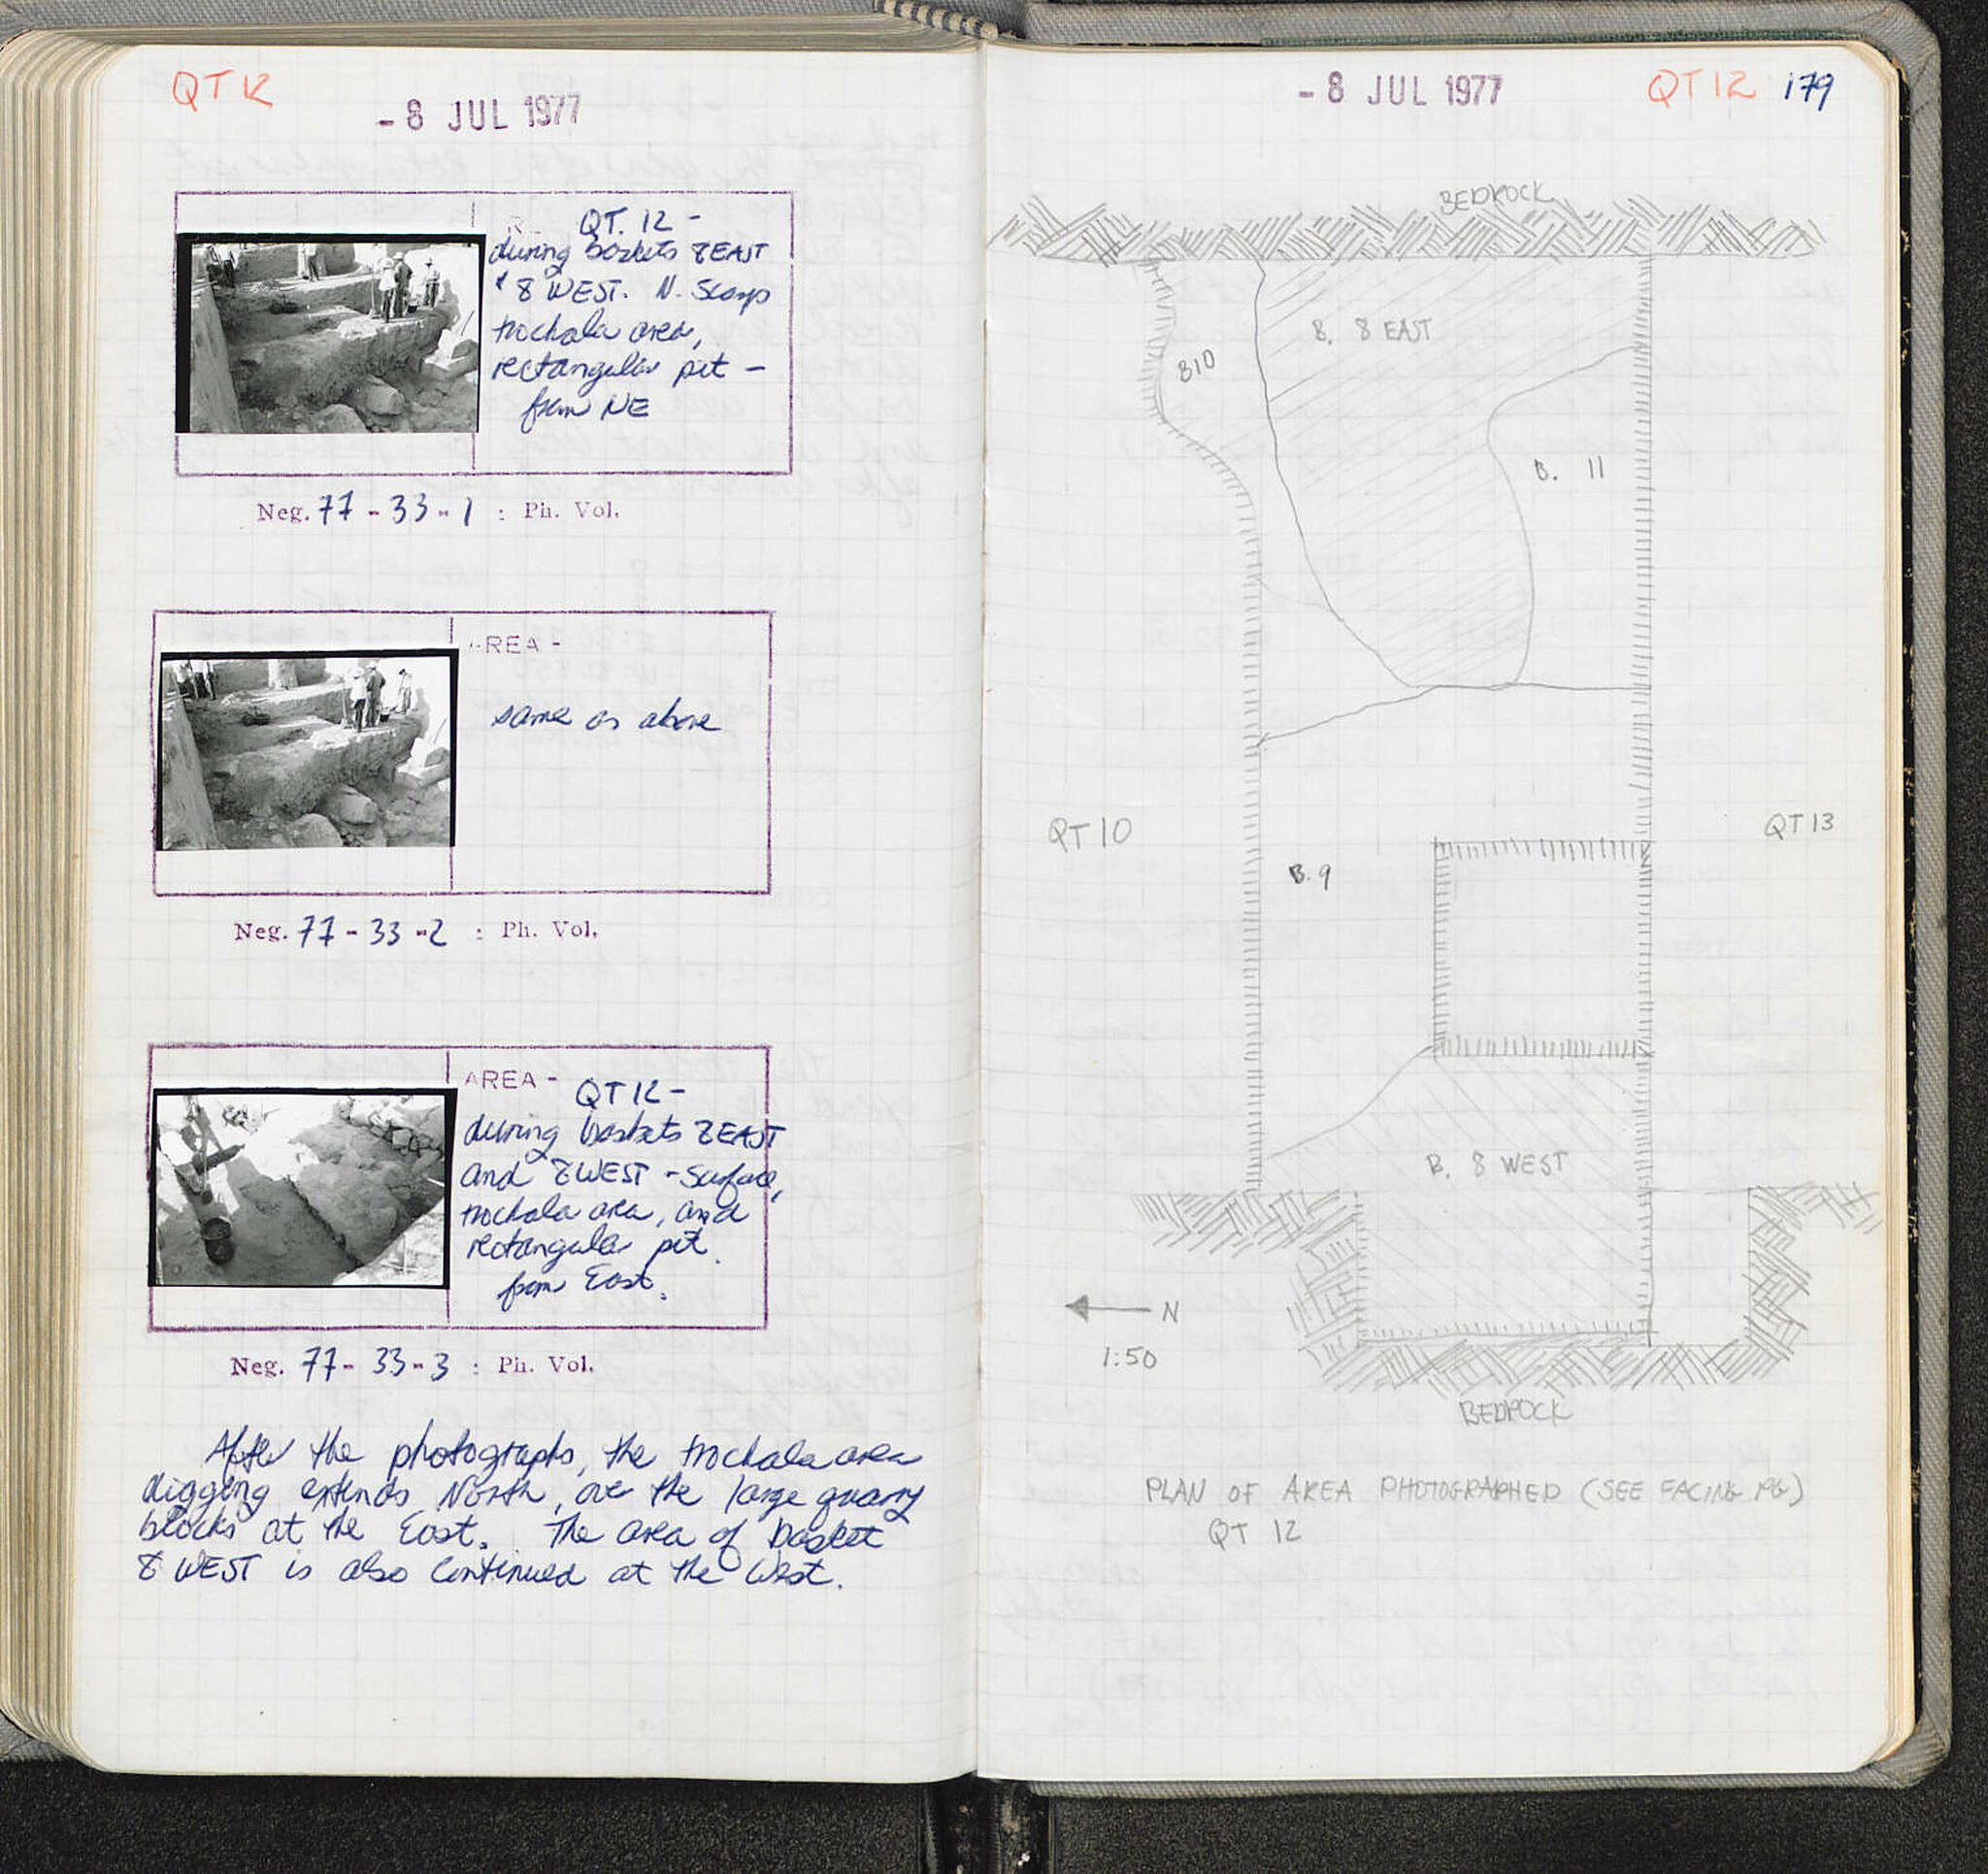 QT 12
- 8 JUL 1977
QT. 12 -
during baskets 8 EAST
& 8 WEST. N. Scarp
trochala area,
rectangular pit -
from NE
Neg. 77 - 33 - 1 : Ph. Vol.
AREA -
same as above
Neg. 77 - 33 - 2 : Ph. Vol.
AREA -
QT 12 -
during baskets 8 EAST
and 8 WEST - Surface,
trochala area, and
rectangular pit.
from East.
Neg. 77 - 33 - 3 : Ph. Vol.
After the photographs, the trochala area
digging extends North, over the large quarry
blocks at the East. The area of basket
8 WEST is also continued at the West.
- 8 JUL 1977
QT 12 179
BEDROCK
B. 8 EAST
B10
B. 11
QT 10
QT 13
B. 9
B. 8 WEST
N
1:50
BEDROCK
PLAN OF AREA PHOTOGRAPHED (SEE FACING PG)
QT 12